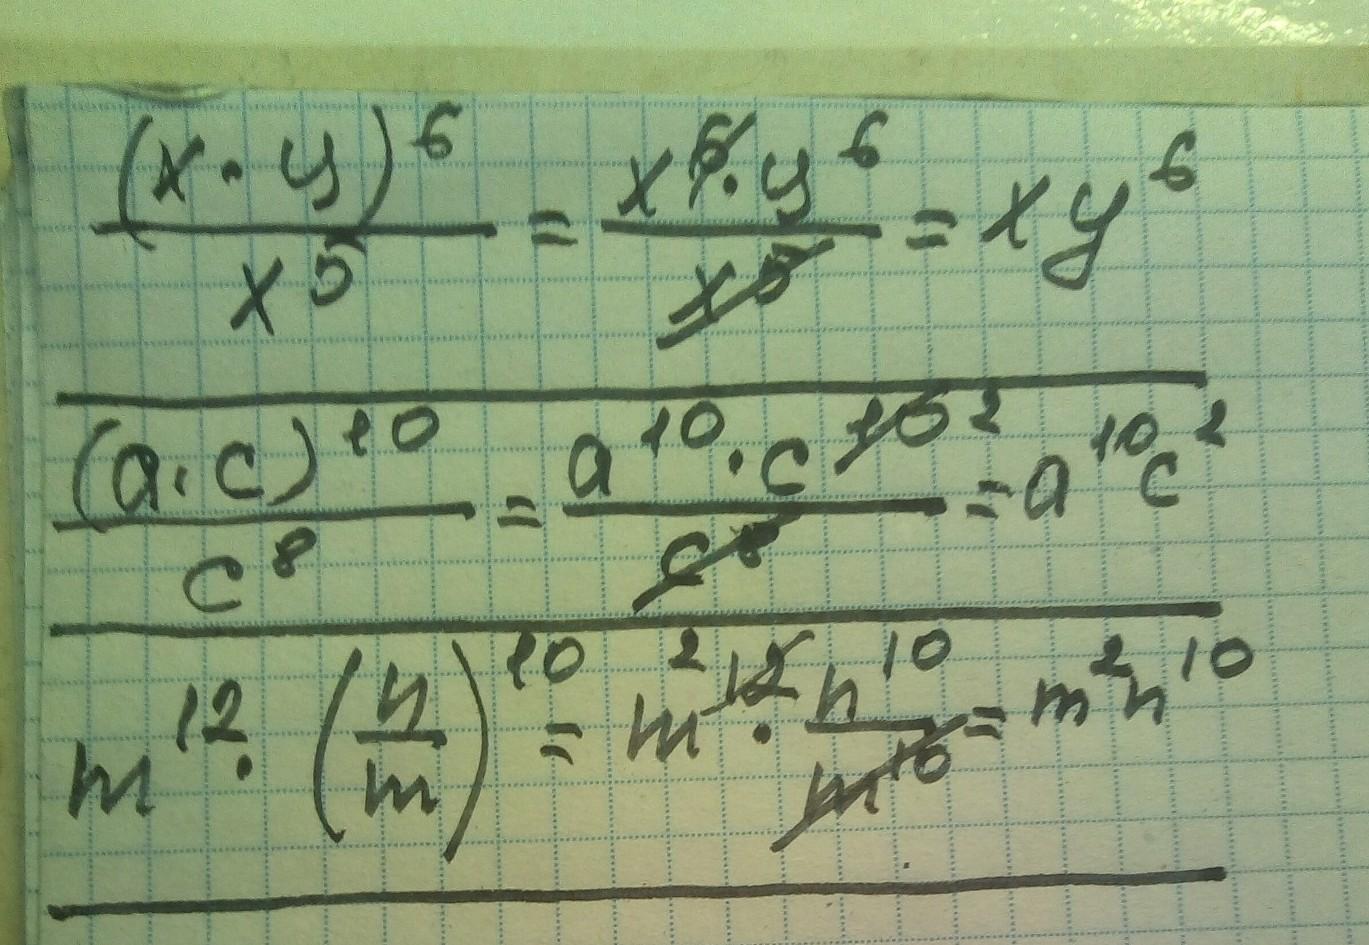 (x·y)⁶/x⁵ = x⁶·y⁶/x⁵ = xy⁶
(a·c)¹⁰/c⁸ = a¹⁰·c¹⁰ ²/c⁸ = a¹⁰c²
m¹²·(n/m)¹⁰ = m² ¹²·n¹⁰/m¹⁰ = m²n¹⁰